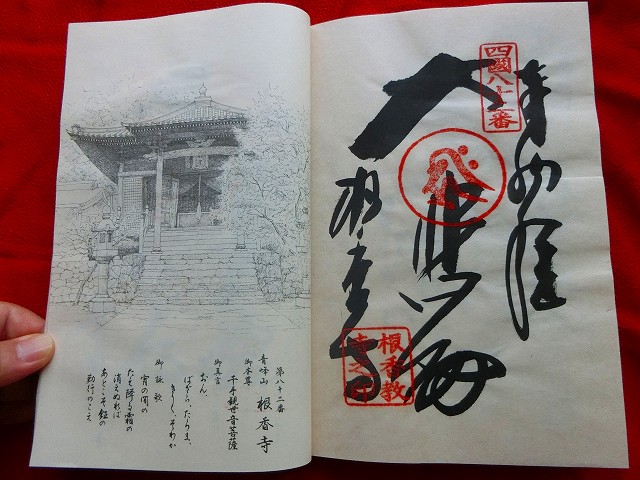 四國八十二番
根香寺
根香教
寺之印
第八十二番
青峰山 根香寺
御本尊
千手観世音菩薩
御真言
おん、
ばざら、たらま、
きりく、そわか
御詠歌
宵の間の
たえ降る霜の
消えぬれば
あとこそ鉦の
勤行のこえ